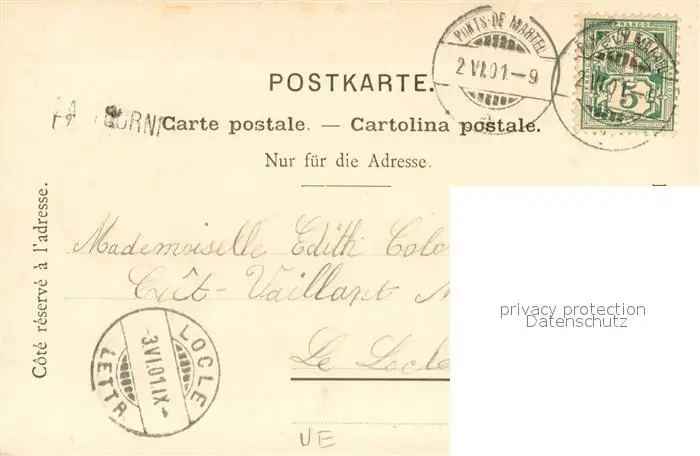 PONTS-DE MARTEL
2 VI.01.-9
FRANCO
5
POSTKARTE.
Carte postale. — Cartolina postale.
Nur für die Adresse.
Côté réservé à l'adresse.
Mademoiselle Edith
Crêt-Vaillant
Le Locle
privacy protection
Datenschutz
LOCLE
-3.VI.01.IX-
LETTR.
UE